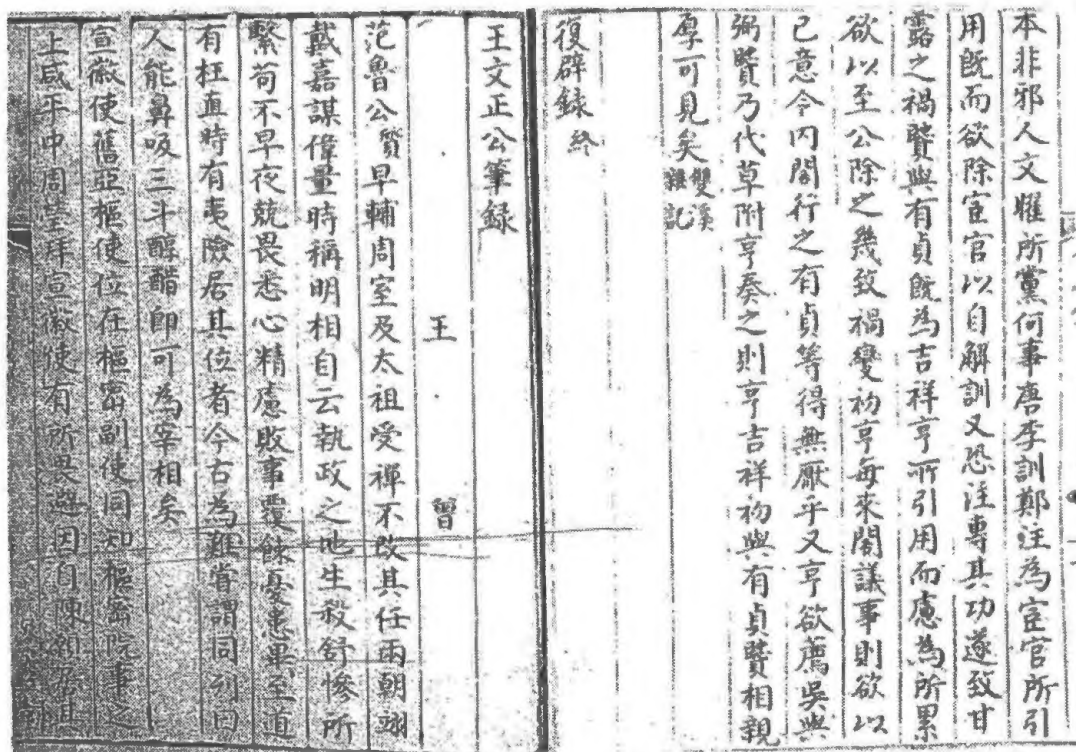 本非邪人文曜所黨何事唐李訓鄭注為宦官所引
用既而欲除宦官以自解訓又恐注專其功遂致甘
露之禍賢與有貞既為吉祥亨所引用而慮為所累
欲以至公除之幾致禍變初亨每來閣議事則欲以
已意令內閣行之有貞等得無厭乎又亨欲薦吳與
弼賢乃代草附亨奏之則亨吉祥初與有貞賢相親
厚可見矣雙溪雜記
復辟録終
王文正公筆録
王曾
范魯公質早輔周室及太祖受禪不改其任兩朝翊
戴嘉謀偉量時稱明相自云執政之地生殺舒慘所
繫苟不早夜兢畏悉心精慮敗事覆餗憂患畢至道
有枉直時有夷險居其位者今古為難嘗謂同列曰
人能鼻吸三斗醇醋即可為宰相矣
宣徽使舊亞樞使位在樞密副使同知樞密院事之
上咸平中周瑩拜宣徽使有所畏避因自陳願居其